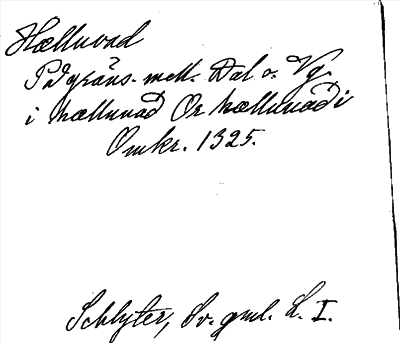 Hælluvad
På gräns. mell. Dal o. Vg.
i hælluvað Or hælluvaði
Omkr. 1325.
Schlyter, Sv. gml. L. I.